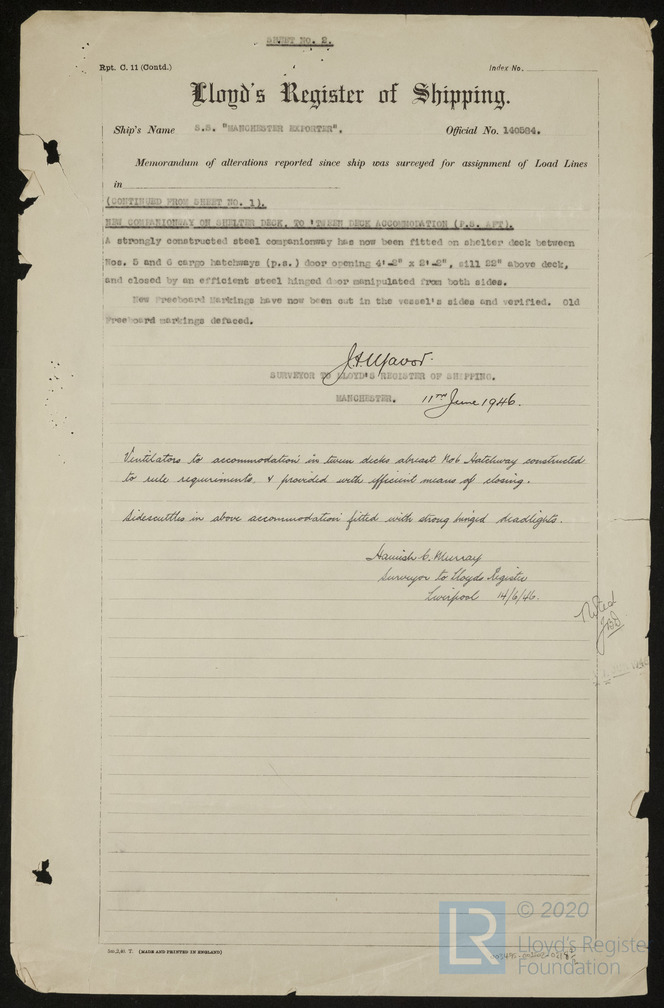 SHEET NO. 2.
Rpt. C. 11 (Contd.)
Index No.
Lloyd's Register of Shipping.
Ship's Name S.S. "MANCHESTER EXPORTER". Official No. 140584.
Memorandum of alterations reported since ship was surveyed for assignment of Load Lines
in
(CONTINUED FROM SHEET NO. 1).
NEW COMPANIONWAY ON SHELTER DECK, TO 'TWEEN DECK ACCOMMODATION (P.S. AFT).
A strongly constructed steel companionway has now been fitted on shelter deck between
Nos. 5 and 6 cargo hatchways (p.s.) door opening 4'-2" x 2'-2", sill 22" above deck,
and closed by an efficient steel hinged door manipulated from both sides.
New Freeboard Markings have now been cut in the vessel's sides and verified. Old
Freeboard markings defaced.
SURVEYOR TO LLOYD'S REGISTER OF SHIPPING.
MANCHESTER. 11TH June 1946.
Ventilators to accommodation in tween decks abreast No 6 Hatchway constructed
to rule requirements & provided with efficient means of closing.
Sidescuttles in above accommodation fitted with strong hinged deadlights.
Hamish C. Murray
Surveyor to Lloyds Register
Liverpool 14/6/46.
Noted
(MADE AND PRINTED IN ENGLAND)
LR
© 2020
Lloyd's Register
Foundation